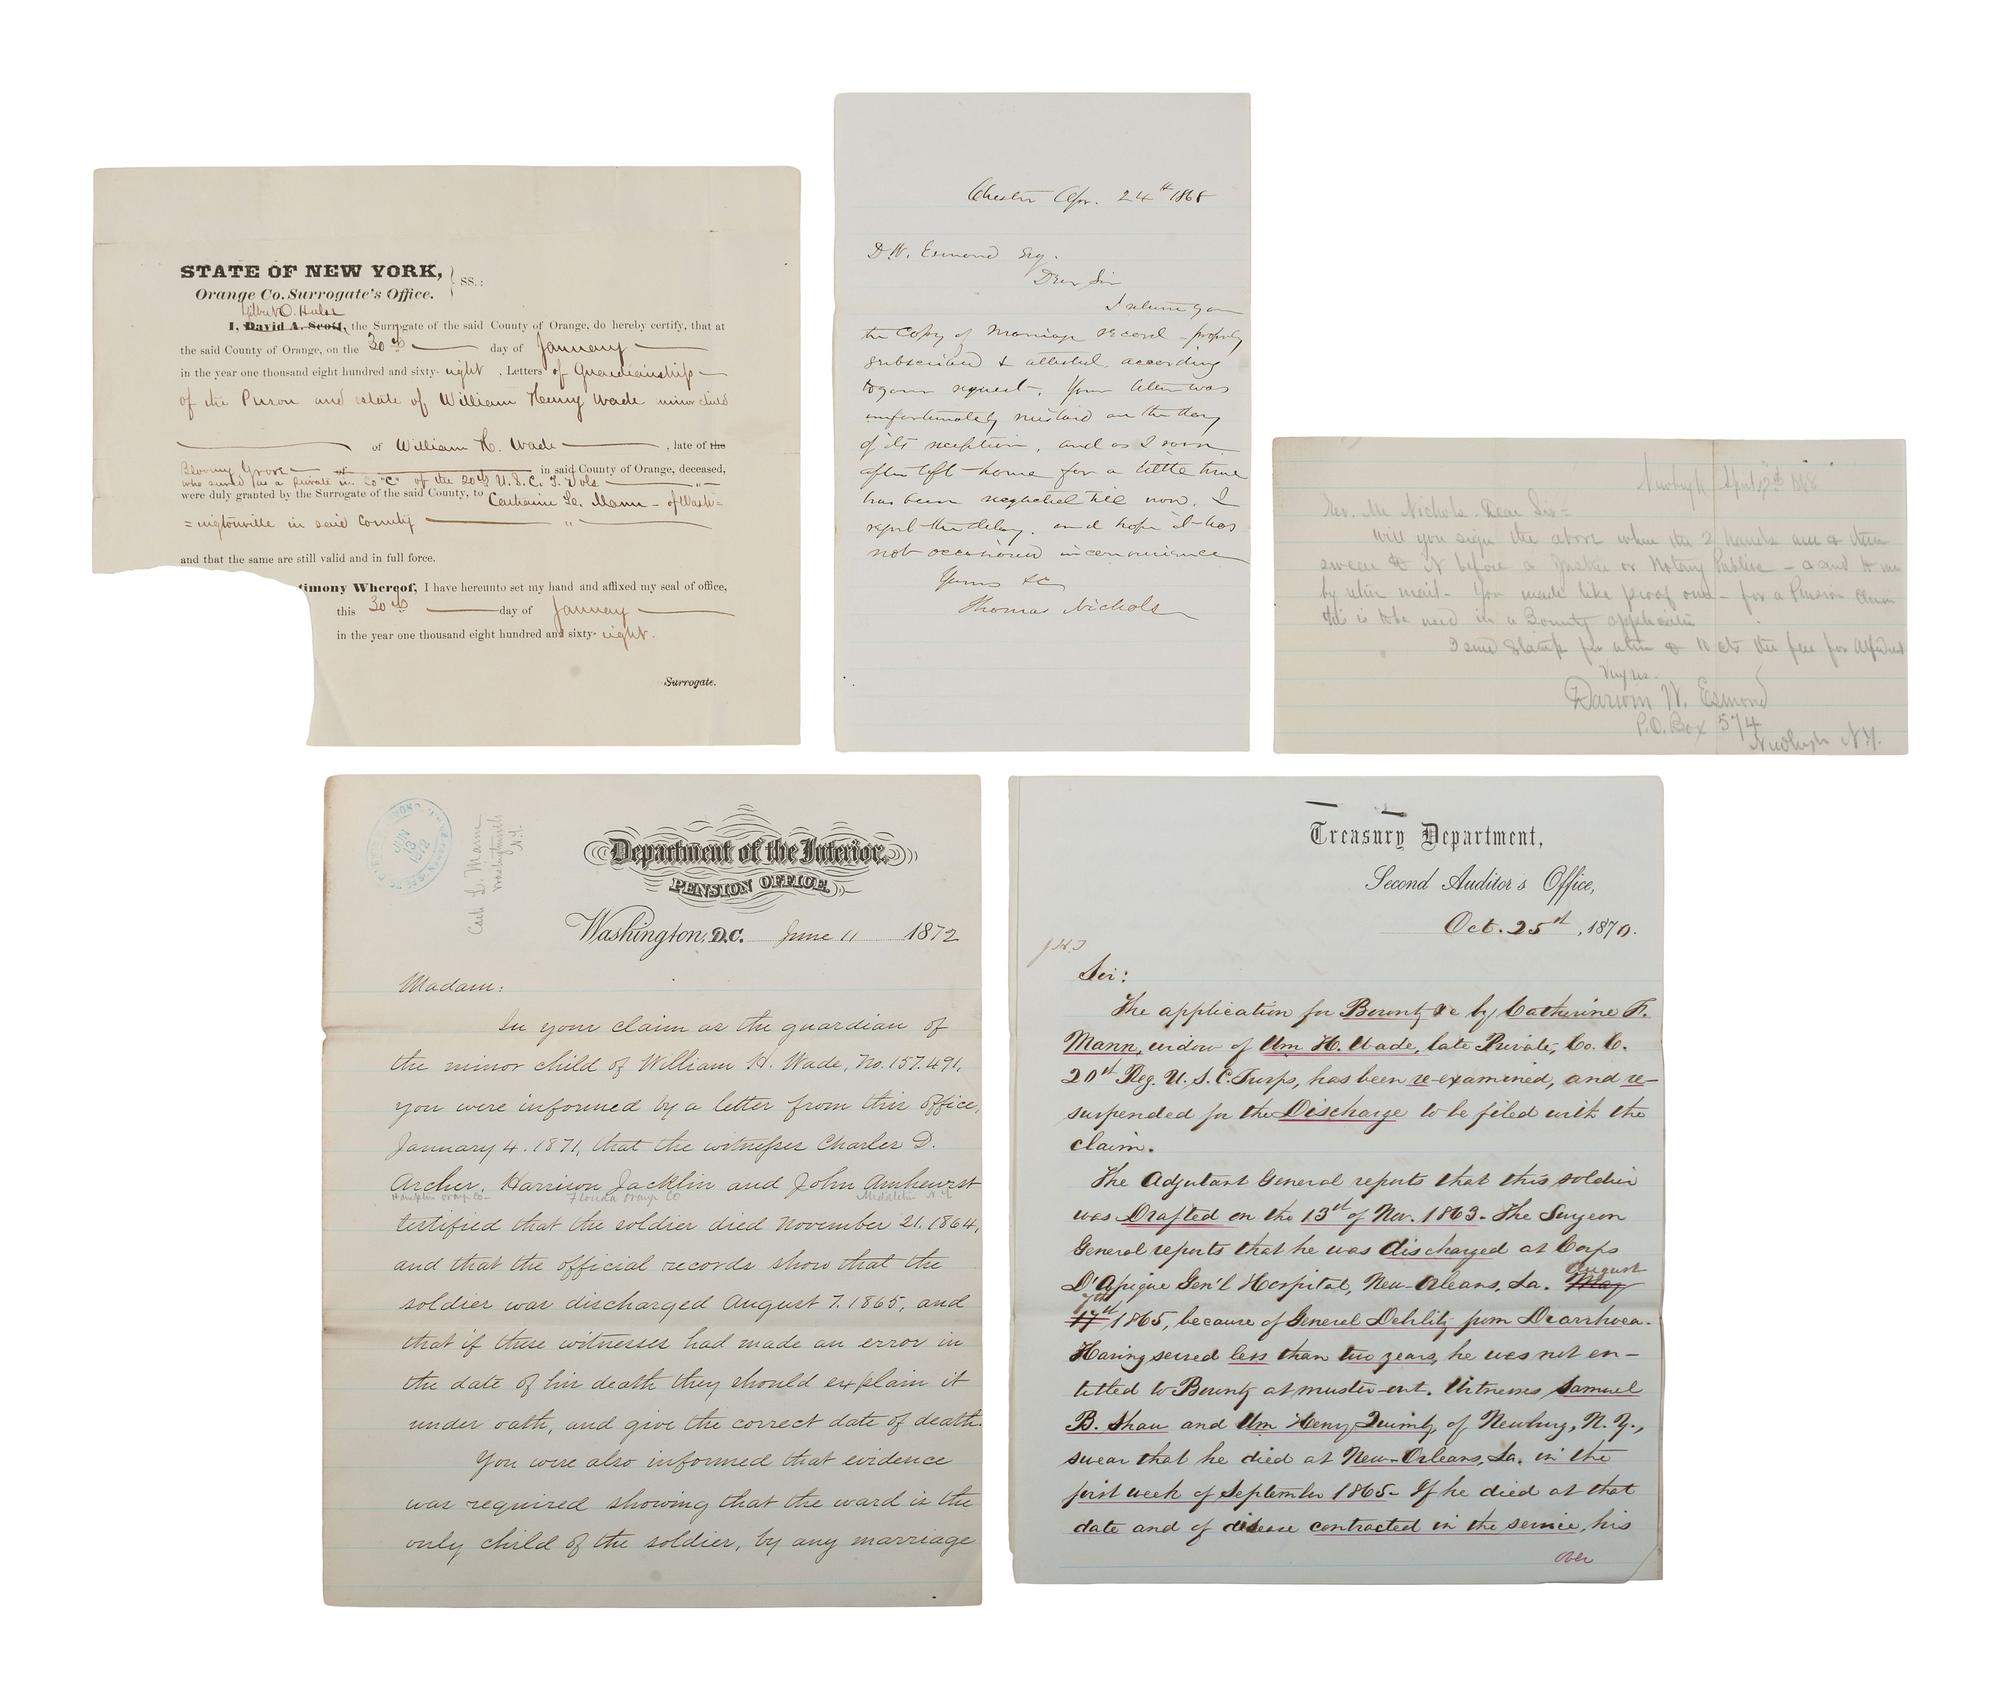 STATE OF NEW YORK,
Orange Co. Surrogate's Office. } SS.:
Gilbert O. Hulse
I, David A. Scott, the Surrogate of the said County of Orange, do hereby certify, that at
the said County of Orange, on the 30th day of January
in the year one thousand eight hundred and sixty-eight, Letters of Guardianship
of the Person and estate of William Henry Wade minor child
of William H. Wade, late of the
Blooming Grove of in said County of Orange, deceased,
who served as a private in Co "C" of the 20th U.S.C.T. Vols "
were duly granted by the Surrogate of the said County, to Catharine L. Mann - of Wash=
=ingtonville in said County "
and that the same are still valid and in full force.
timony Whereof, I have hereunto set my hand and affixed my seal of office,
this 30th day of January
in the year one thousand eight hundred and sixty-eight.
Surrogate.
Chester Apr. 24th 1868
D. W. Esmond Esq.
Dear Sir
I return you
the Copy of Marriage record - properly
subscribed & attested according
to your request. Your letter was
unfortunately mislaid on the day
of its reception, and as I soon
after left home for a little time
has been neglected till now. I
regret the delay, and hope it has
not occasioned inconvenience
Yours &c
Thomas Nichols
Newburgh April 1868
Rev. Mr Nichols. Dear Sir=
Will you sign the above where the 2 hands are & then
swear to it before a Justice or Notary Public - and to me
by return mail. You made like proof once - for a Pension Claim
this is to be used in a Bounty application
I send Stamp for return & 10 cts the fee for Affidavit
Darwin W. Esmond
P.O. Box 574
Newburgh N.Y.
JUN 13 1872
Cath L. Mann
Washingtonville
N.Y.
Department of the Interior.
PENSION OFFICE,
Washington, D.C. June 11 1872
Madam:
In your claim as the guardian of
the minor child of William H. Wade, No. 157.491,
you were informed by a letter from this office,
January 4. 1871, that the witnesses Charles D.
Archer, Harrison Jacklin and John Amherst
Hampton Orange Co- Florida Orange Co Middletown N.Y.
testified that the soldier died November 21. 1864,
and that the official records show that the
soldier was discharged August 7. 1865, and
that if these witnesses had made an error in
the date of his death they should explain it
under oath, and give the correct date of death.
You were also informed that evidence
was required showing that the ward is the
only child of the soldier, by any marriage
Treasury Department,
Second Auditor's Office,
Oct. 25th, 1870.
Sir:
The application for Bounty &c by Catherine F.
Mann, widow of Wm H. Wade, late Private, Co. C.
20th Reg. U.S.C. Turps, has been re-examined, and re-
suspended for the Discharge to be filed with the
claim.
The Adjutant General reports that this soldier
was Drafted on the 13th of Nov. 1863. The Surgeon
General reports that he was discharged at Corps
D'Afrique Gen'l Hospital, New-Orleans, La. May August
17th 7th 1865, because of General Debility from Diarrhoea.
Having served less than two years, he was not en-
titled to Bounty at muster-out. Witnesses Samuel
B. Shaw and Wm Henry Quimby, of Newburg, N.Y.,
swear that he died at New-Orleans, La. in the
first week of September 1865. If he died at that
date and of disease contracted in the service, his
over